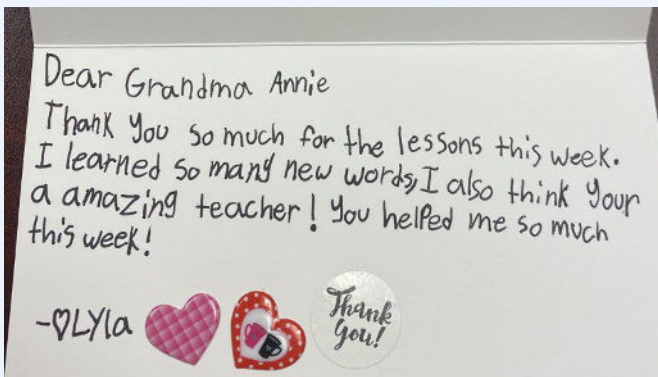 Dear Grandma Annie
Thank you so much for the lessons this week.
I learned so many new words, I also think your
a amazing teacher! You helped me so much
this week!
-♡LYla
Thank
You!